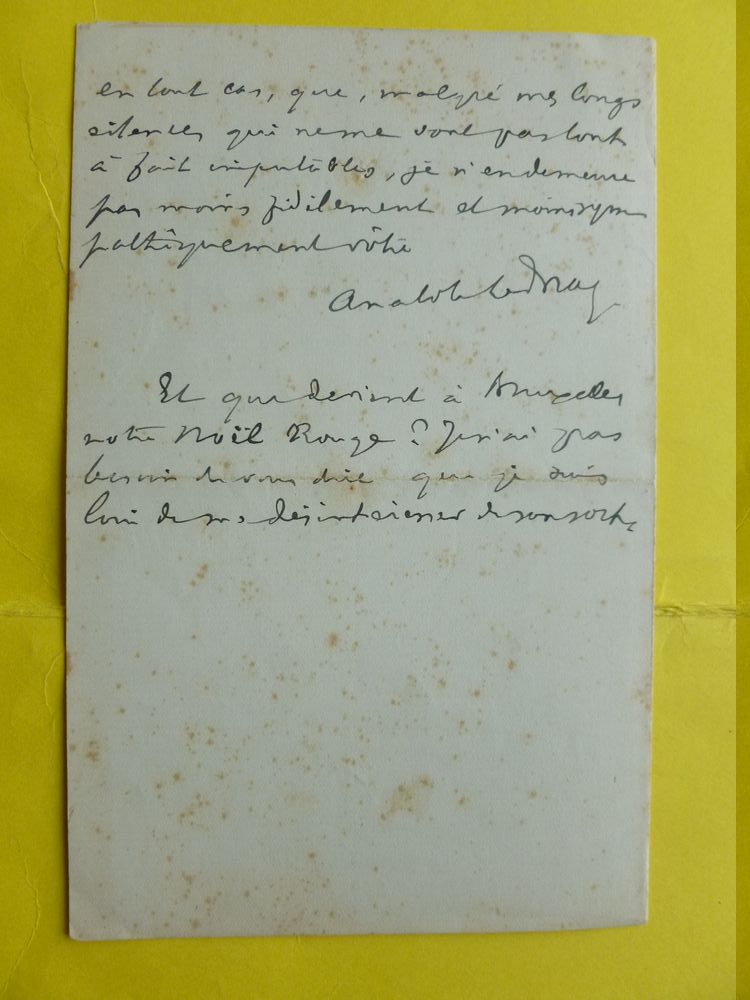 en tout cas, que, malgré mes longs
silences qui ne me sont pas touts
à fait imputables, je n'en demeure
pas moins fidèlement et moins sym
pathiquement vôtre
Anatole Le Braz
Et que devient à Bruxelles
notre Noël Rouge ? Je n'ai pas
besoin de vous dire que je suis
loin de me désintéresser de son sort.